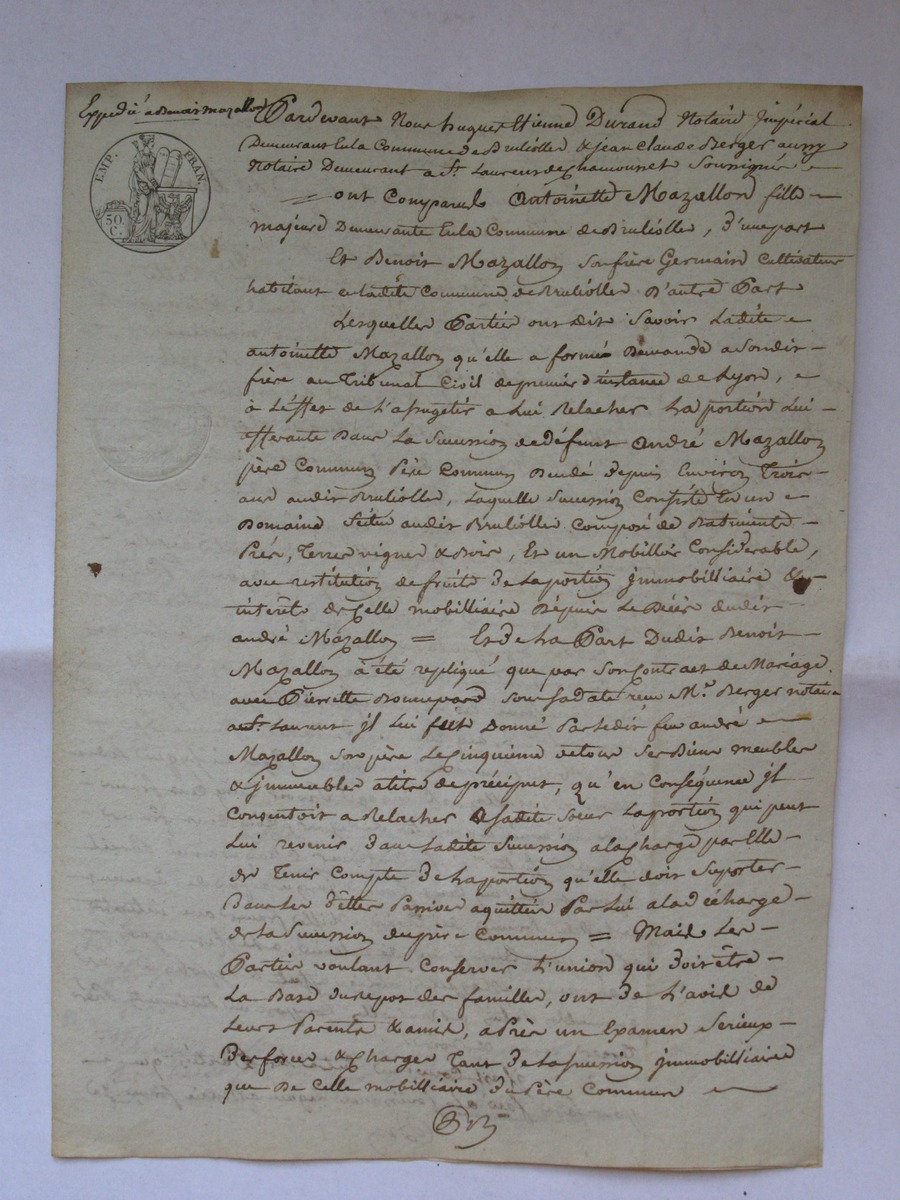 Expedié a Benoit mazallon
EMP. FRAN.
50. C.
Pardevant Nous hugues Etienne Durand Notaire Impérial
Demeurant En la Commune de Brullolles & Jean Claude Berger aussy
Notaire Demeurant a St. Laurent de Chamousset Soussignés
= ont Comparus Antoinette Mazallon fille
majeure Demeurante En la Commune de Brullolles, d'une part
Et Benoit Mazallon Son frère Germain Cultivateur
habitant en ladite Commune de Brullolles D'autre Part
Lesquelles Parties ont dit Savoir Ladite
antoinette Mazallon qu'elle a formé Demande a Son dit
frère au Tribunal Civil de premier d'instance de Lyon,
à L'éffet de L'assugetir a Lui Relacher La portion Lui
afferante Dans La Succession de défunt André Mazallon
père Commun Père Commun Décédé depuis Environ Trois
ans audit Brullolles, Laquelle Succession Consiste En un
Domaine Scitué audit Brullolles Composé de Batiments
Prés, Terres vignes & Bois, Et un Mobillier Considerable,
avec restitution de fruits de La portion immobilliaire &
intérêts de Celle mobilliaire Dépuis Le Décès dudit
andré Mazallon = Et de La Part Dudit Benoit
Mazallon à été repliqué que par Son Contract de Mariage
avec Pierrette sous sa date reçu Me. Berger notaire
a St. Laurent il Lui fut Donné Par Ledit feu andré
Mazallon Son père Le Cinquième de tous Ses Biens meubles
& immeubles a titre de préciput, qu'en Conséquence il
Consentoit a Relacher a Sadite Soeur La portion qui peut
Lui revenir dans Ladite Succession a la Charge par Elle
de Tenir Compte de La portion qu'elle doit Suporter
Dans Les Dettes Passives aquittées Par Lui a la décharge
de La Succession du père Commun = Mais Les
Parties voulant Conserver L'union qui doit être
La Base du repos des familles, ont de L'avis de
Leurs Parents & amis, aPrès un Examen Serieux
Des forces & Charges Tant de La succession immobilliaire
que De Celle mobilliaire du Père Commun